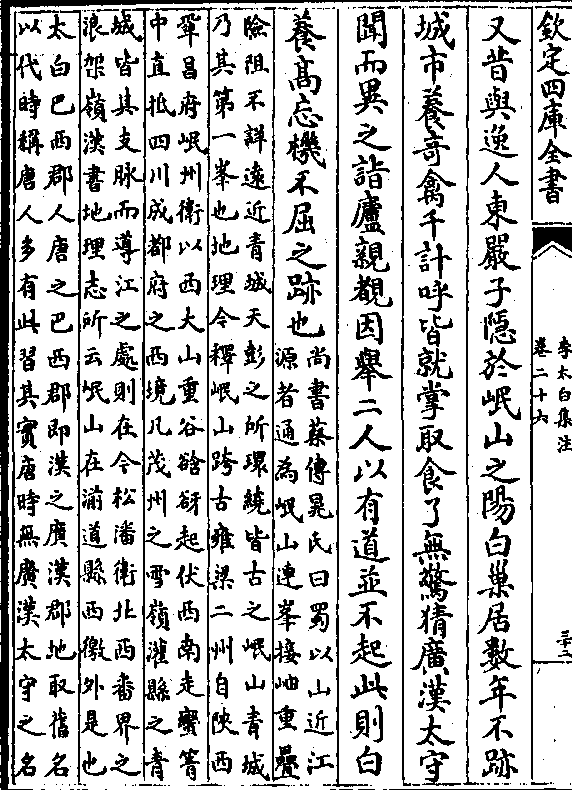 欽定四庫全書
李太白集注
卷二十六
三二
又昔與逸人東嚴子隱於岷山之陽白巢居數年不跡
城市養奇禽千計呼皆就掌取食了無驚猜廣漢太守
聞而異之詣廬親覩因舉二人以有道並不起此則白
養高忘機不屈之跡也
尚書蔡傳晁氏曰蜀以山近江
源者通為岷山連峯接岫重疊
險阻不詳遠近青城天彭之所環繞皆古之岷山青城
乃其第一峯也地理今釋岷山跨古雍梁二州自陜西
鞏昌府岷州衛以西大山重谷谽谺起伏西南走蠻箐
中直抵四川成都府之西境凡茂州之雪嶺灌縣之青
城皆其支脉而導江之處則在今松潘衛北西番界之
浪架嶺漢書地理志所云岷山在湔道縣西徼外是也
太白巴西郡人唐之巴西郡即漢之廣漢郡地取舊名
以代時稱唐人多有此習其實唐時無廣漢太守之名